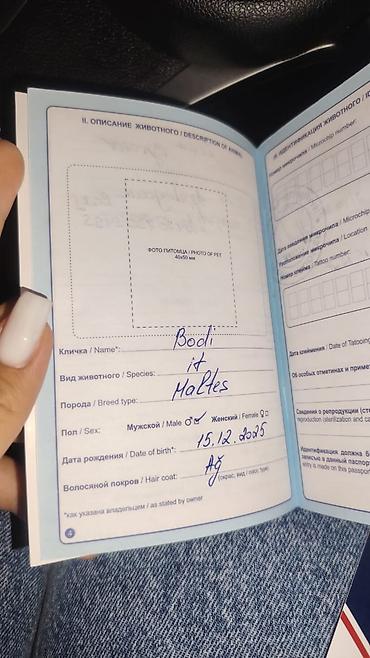 II. ОПИСАНИЕ ЖИВОТНОГО / DESCRIPTION OF ANIMAL
ФОТО ПИТОМЦА / PHOTO OF PET
40x50 мм
Кличка / Name*: Bodi
Вид животного / Species: it
Порода / Breed type: Maltes
Пол / Sex: Мужской / Male ♂ ✓ Женский / Female ♀ □
Дата рождения / Date of birth*: 15.12.2025
Волосяной покров / Hair coat: Ağ
(окрас, вид / color, type)
*как указана владельцем / as stated by owner
4
III. ИДЕНТИФИКАЦИЯ ЖИВОТНОГО / 
Номер микрочипа / Microchip number:
Дата введения микрочипа / Microchip
Расположение микрочипа / Location
Номер клейма / Tattoo number:
Дата клеймения / Date of Tattooing
Об особых отметинах и
Сведения о репродукции
reproduction
Идентификация должна
записью в данный
entry is made on this